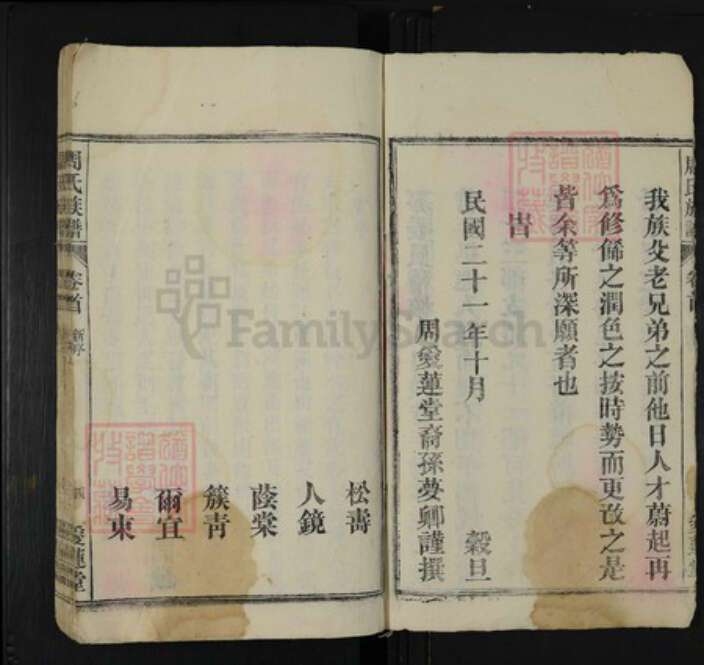 我族父老兄弟之前他日人才蔚起再
爲修飾之潤色之按時勢而更改之是
皆余等所深願者也
旹
民國二十一年十月 穀旦
周愛蓮堂裔孫夢卿謹撰
松壽
人鏡
蔭棠
簇青
爾宜
易東
周氏族譜 卷首 新序 四 愛蓮堂
FamilySearch